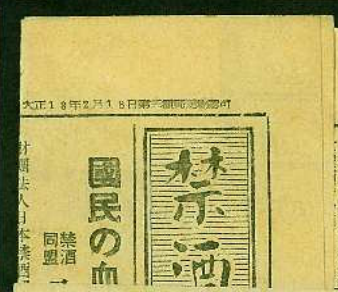 大正13年2月18日第三種郵便物認可
禁酒
國民の血
禁酒
同盟
財團法人日本禁酒